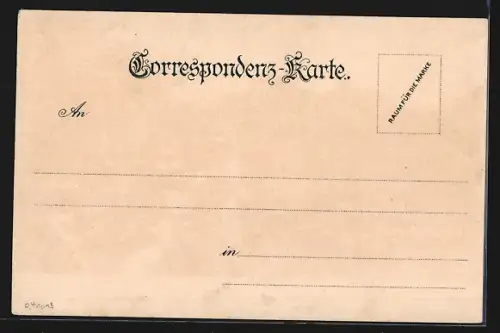 Correspondenz-Karte.
RAUM FÜR DIE MARKE
An
in